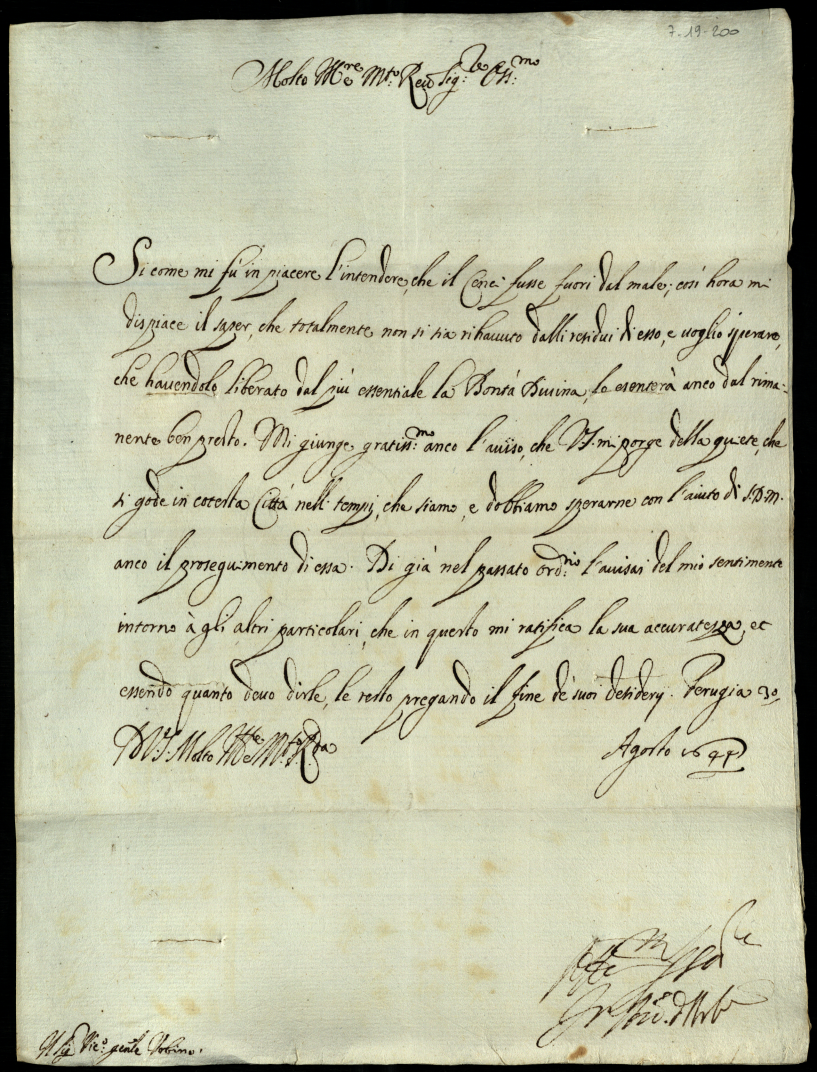 7-19-200
Molto Ill.re e M.to Rev.do Sig.re Oss.mo
Si come mi fù in piacere l'intendere, che il Cenci fusse fuori dal male; così hora mi
dispiace il saper, che totalmente non si sia rihavuto dalli residui di esso, e voglio sperare,
che havendolo liberato dal più essentiale la Bontà Divina, lo esenterà anco dal rima-
nente ben presto. Mi giunge gratiss.mo anco l'avviso, che V.S. mi porge della quiete, che
si gode in cotesta Città nelli tempi, che siamo, e dobbiamo sperarne con l'aiuto di S.D.M.
anco il proseguimento di essa. Di già nel passato ord.rio l'avisai del mio sentimento
intorno à gli altri particolari, che in questo mi ratifica la sua accuratezza, et
essendo quanto devo dirle, le resto pregando il fine de' suoi desiderij. Perugia 30
D V.S. Molto Ill.re e M.to R.da
Agosto 16
Al Sig.r Vic.o gen.le Urbino.